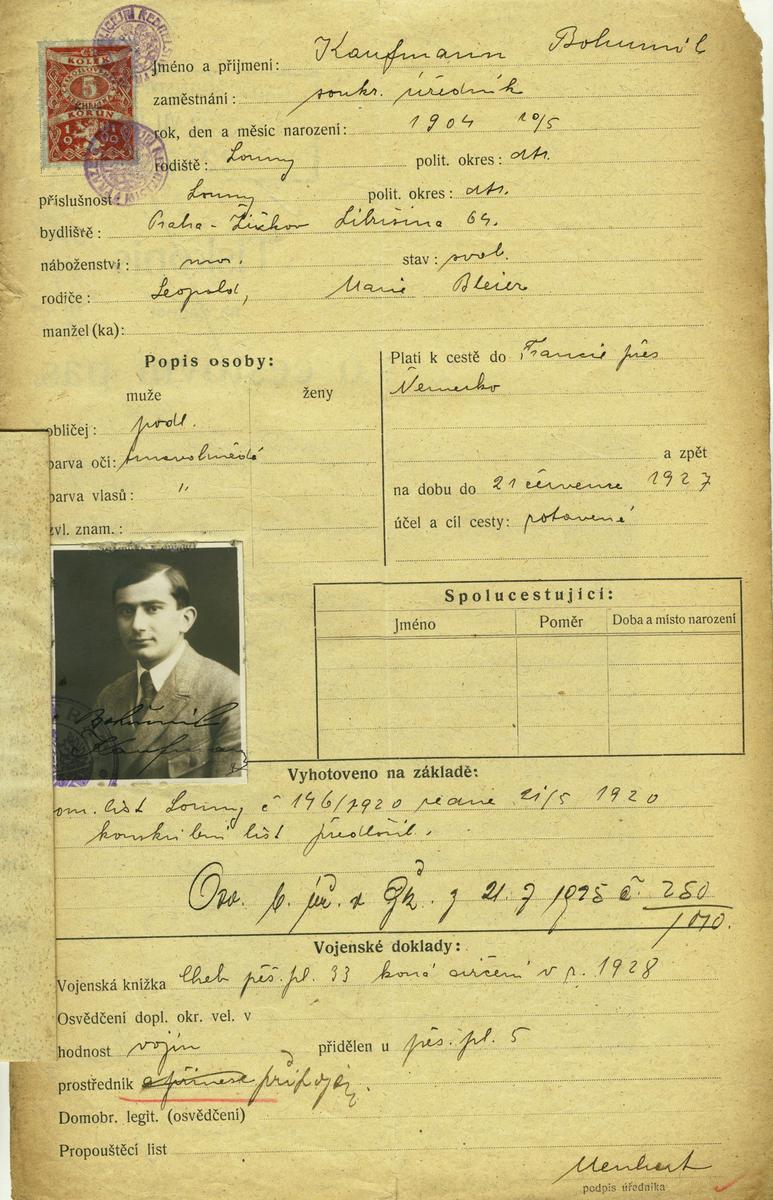 KOLEK
5
KORUN
Jméno a příjmení: Kaufmann Bohumil
zaměstnání: soukr. úředník
rok, den a měsíc narození: 1904 10/5
rodiště: Louny polit. okres: dto.
příslušnost Louny polit. okres: dto.
bydliště: Praha - Žižkov Libušina 64.
náboženství: moz. stav: svob.
rodiče: Leopold, Marie Bleier
manžel(ka):
Popis osoby:
muže ženy
obličej: podl.
barva očí: tmavohnědé
barva vlasů: "
zvl. znam.:
Platí k cestě do Francie přes
Německo
a zpět
na dobu do 21 července 1927
účel a cíl cesty:
Spolucestující:
Jméno Poměr Doba a místo narození
Bohumil
Kaufmann
Vyhotoveno na základě:
dom. list Louny č 146/1920 ze dne 21/5 1920
konskribční list předložil.
21. 7 1925 č. 250
Vojenské doklady:
Vojenská knížka Cheb pěš. pl. 33 koná cvičení v r. 1928
Osvědčení dopl. okr. vel. v
hodnost vojín přidělen u pěš. pl. 5
prostředník
Domobr. legit. (osvědčení)
Propouštěcí list
podpis úředníka